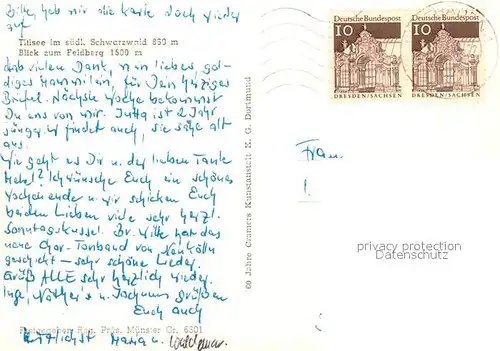 Bitte, heb mir die Karte doch wieder
auf
Titisee im südl. Schwarzwald 860 m
Blick zum Feldberg 1500 m
Hab vielen Dank, mein liebes gol-
diges Mammilein, für Dein herziges
Briefel. Nächste Woche bekommst
Du eins von mir. Jutta ist 2 Jahr
jünger u. findet auch, sie sähe alt
aus.
Wie geht es Dir u. der lieben Tante
? Ich wünsche Euch ein schönes
Wochenende u. wir schicken Euch
beiden Lieben viele sehr herzl.
Sonntagskussel. Br. Wilke hat das
neue Chor-Tonband von Neukölln
geschickt – sehr schöne Lieder.
Grüß ALLE sehr herzlich wieder.
Inge, u. grüßen
Euch auch
herzlichst Maria u. Waldemar.
Freigegeben Reg. Präs. Münster Cr. 6801
69 Jahre Cramers Kunstanstalt K. G. Dortmund
Deutsche Bundespost Deutsche Bundespost
10 10
DRESDEN/SACHSEN DRESDEN/SACHSEN
Frau
privacy protection
ansichtskartenversand.com